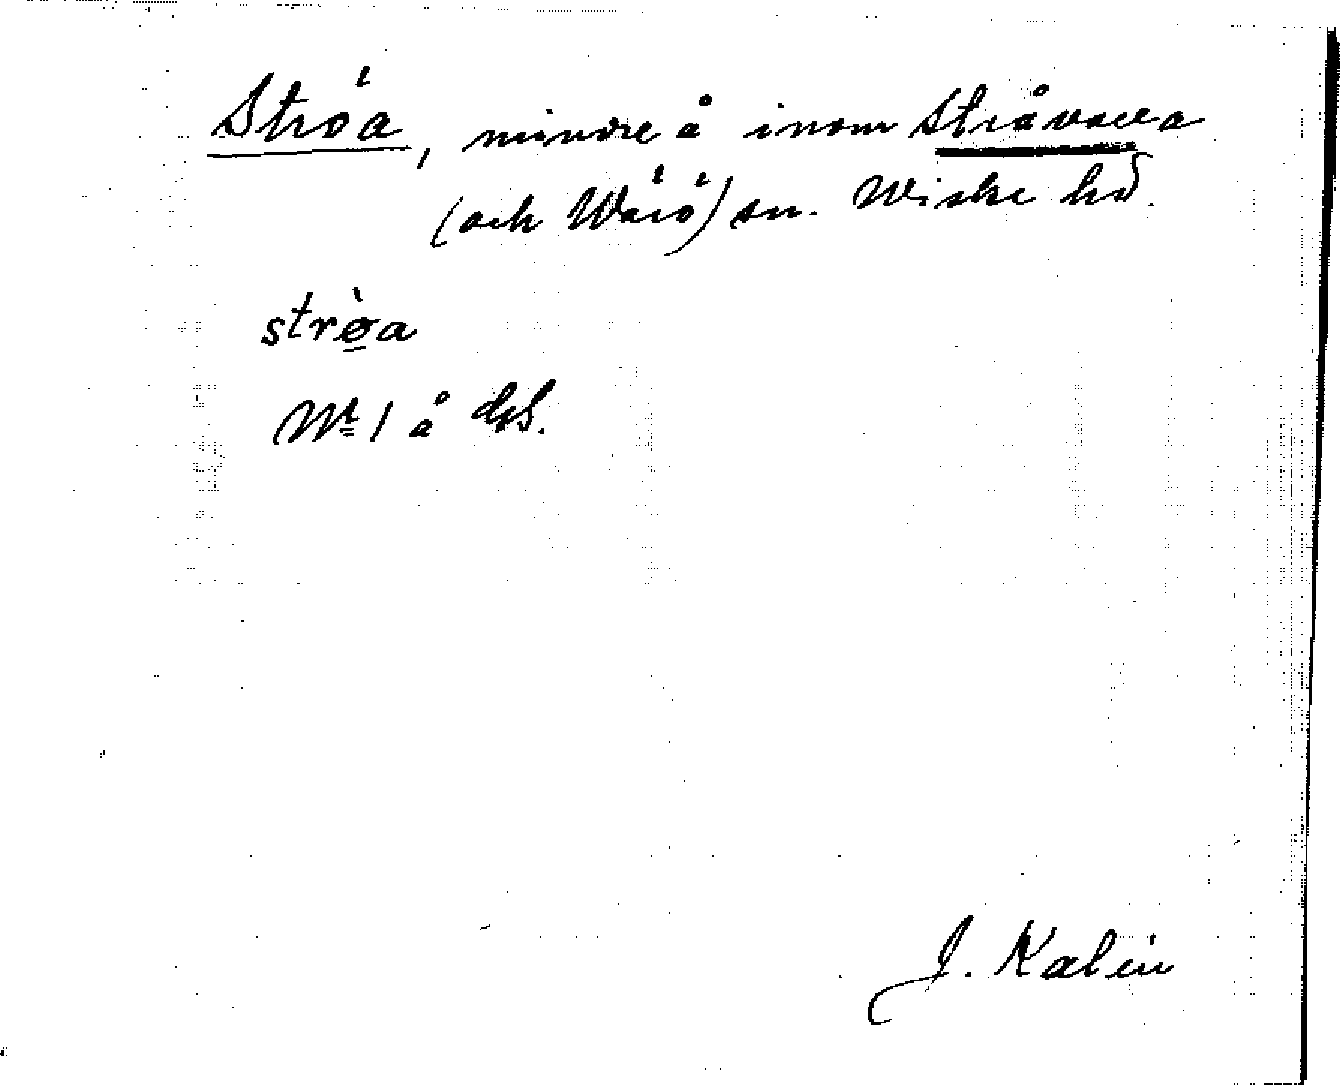 Ströa, mindre å inom Stråvalla
(och Wärö) sn. Wiske hd.
strø̀a
Nr 1 å GS.
J. Kalén